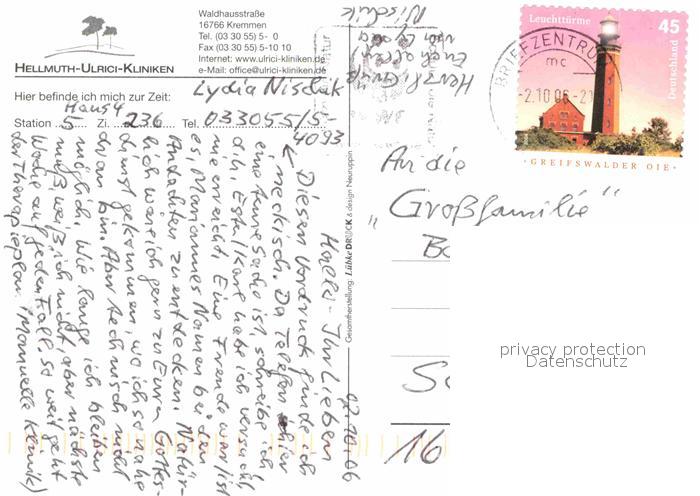 Waldhausstraße
16766 Kremmen
Tel. (03 30 55) 5- 0
Fax (03 30 55) 5-10 10
Internet: www.ulrici-kliniken.de
e-Mail: office@ulrici-kliniken.de
HELLMUTH-ULRICI-KLINIKEN
Lydia Nischuk
Hier befinde ich mich zur Zeit:
Haus 4
Station 5 Zi. 236 Tel. 033055/5-
4093
02.10.06
Hallo - Ihr Lieben
Diesen Vordruck finde ich
neckisch. Da Telefon
eine teure Sache ist, schreibe ich
d. Esel habe ich
nie erreicht. Eine Freude war ist
es, Mariannes Namen bei den
Andachten zu entdecken. Natür-
lich wäre ich gern zu Euren Gottes-
dienst gekommen, wo ich so nahe
dran bin. Aber technisch nicht
möglich. Wie lange ich bleiben
muß, weiß ich nicht, aber nächste
Woche auf jeden Fall, so weit geht
der Therapieplan. (Manuelle Klinik)
Herzl. Grüße
Euch allen
von Lydia
Nischuk
Gesamtherstellung: Lübke DRUCK & design Neuruppin
Leuchttürme
45
Deutschland
GREIFSWALDER OIE
BRIEFZENTRUM
mc
-2.10.06-21
An die
„Großfamilie"
16
privacy protection
Datenschutz